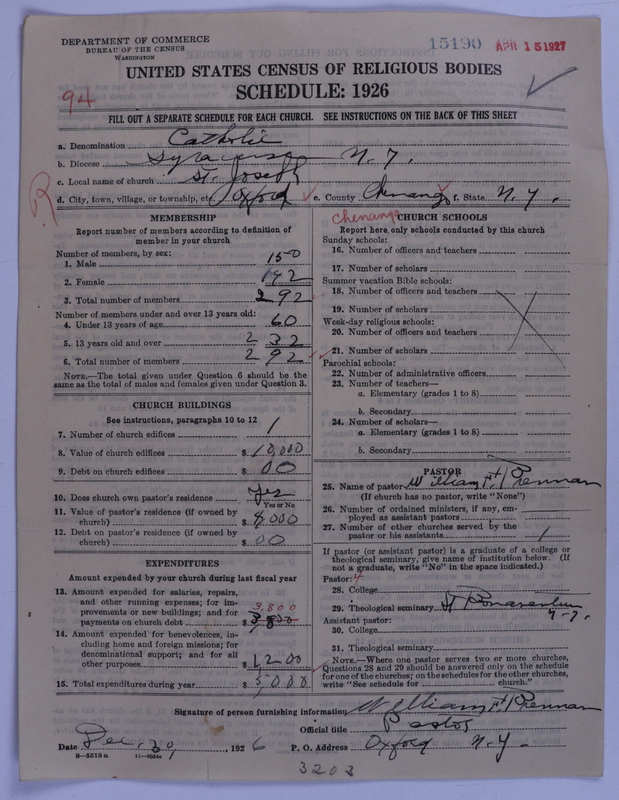 DEPARTMENT OF COMMERCE
BUREAU OF THE CENSUS
WASHINGTON
15190 APR 15 1927
UNITED STATES CENSUS OF RELIGIOUS BODIES
SCHEDULE: 1926
94
FILL OUT A SEPARATE SCHEDULE FOR EACH CHURCH. SEE INSTRUCTIONS ON THE BACK OF THIS SHEET
a. Denomination Catholic
b. Diocese Syracuse N.Y.
c. Local name of church St. Joseph
d. City, town, village, or township, etc. Oxford e. County Chenango f. State N.Y.
R
Chenango
MEMBERSHIP
Report number of members according to definition of
member in your church
Number of members, by sex:
1. Male 150
2. Female 142
3. Total number of members 292
Number of members under and over 13 years old:
4. Under 13 years of age 60
5. 13 years old and over 232
6. Total number of members 292
NOTE.—The total given under Question 6 should be the
same as the total of males and females given under Question 3.
CHURCH BUILDINGS
See instructions, paragraphs 10 to 12
7. Number of church edifices 1
8. Value of church edifices $10,000
9. Debt on church edifices $00
10. Does church own pastor's residence Yes
Yes or No
11. Value of pastor's residence (if owned by
church) $8000
12. Debt on pastor's residence (if owned by
church) $00
EXPENDITURES
Amount expended by your church during last fiscal year
13. Amount expended for salaries, repairs,
and other running expenses; for im-
provements or new buildings; and for 3,800
payments on church debt $3,800
14. Amount expended for benevolences, in-
cluding home and foreign missions; for
denominational support; and for all
other purposes $1,200
15. Total expenditures during year $5,000
CHURCH SCHOOLS
Report here only schools conducted by this church
Sunday schools:
16. Number of officers and teachers
17. Number of scholars
Summer vacation Bible schools:
18. Number of officers and teachers
19. Number of scholars
Week-day religious schools:
20. Number of officers and teachers
21. Number of scholars
Parochial schools:
22. Number of administrative officers
23. Number of teachers—
a. Elementary (grades 1 to 8)
b. Secondary
24. Number of scholars—
a. Elementary (grades 1 to 8)
b. Secondary
PASTOR
25. Name of pastor William H. Brennan
(If church has no pastor, write "None")
26. Number of ordained ministers, if any, em-
ployed as assistant pastors
27. Number of other churches served by the
pastor or his assistants 1
If pastor (or assistant pastor) is a graduate of a college or
theological seminary, give name of institution below. (If
not a graduate, write "No" in the space indicated.)
Pastor: 4
28. College
29. Theological seminary St Bonaventure
N.Y.
Assistant pastor:
30. College
31. Theological seminary
NOTE.—Where one pastor serves two or more churches,
Questions 28 and 29 should be answered only on the schedule
for one of the churches; on the schedules for the other churches,
write "See schedule for church."
Signature of person furnishing information William H. Brennan
Official title Pastor
Date Dec. 29, 1926 P. O. Address Oxford N.Y.
8—5518 a 11—9054a
3203